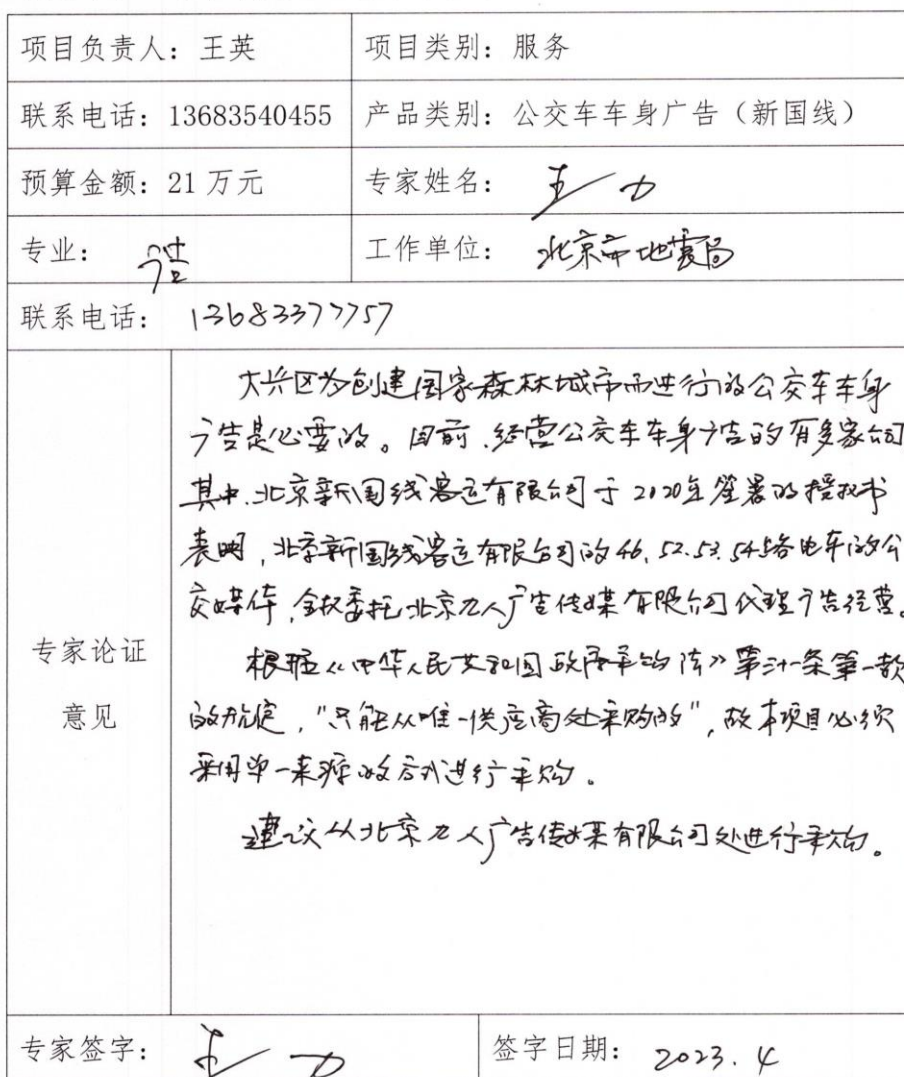 项目负责人：王英 项目类别：服务
联系电话：13683540455 产品类别：公交车车身广告（新国线）
预算金额：21 万元 专家姓名：王力
专业： 工作单位：北京市地震局
联系电话：13683377757
大兴区为创建国家森林城市而进行的公交车车身
广告是必要的。目前，经营公交车车身广告的有多家公司
其中，北京新国线客运有限公司于2020年签署的授权书
表明，北京新国线客运有限公司的46、52、53、545各电车的公
交媒体，全权委托北京力人广告传媒有限公司代理广告经营。
专家论证
意见
根据《中华人民共和国政府采购法》第三十一条第一款
的规定，"只能从唯一供应商处采购的"，故本项目必须
采用单一来源的方式进行采购。
建议从北京力人广告传媒有限公司处进行采购。
专家签字：王力 签字日期：2023.4